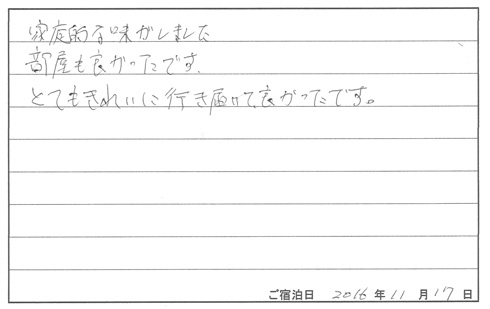 家庭的な味がしました
部屋も良かったです.
とてもきれいに行き届いて良かったです。
ご宿泊日 2016年11月17日